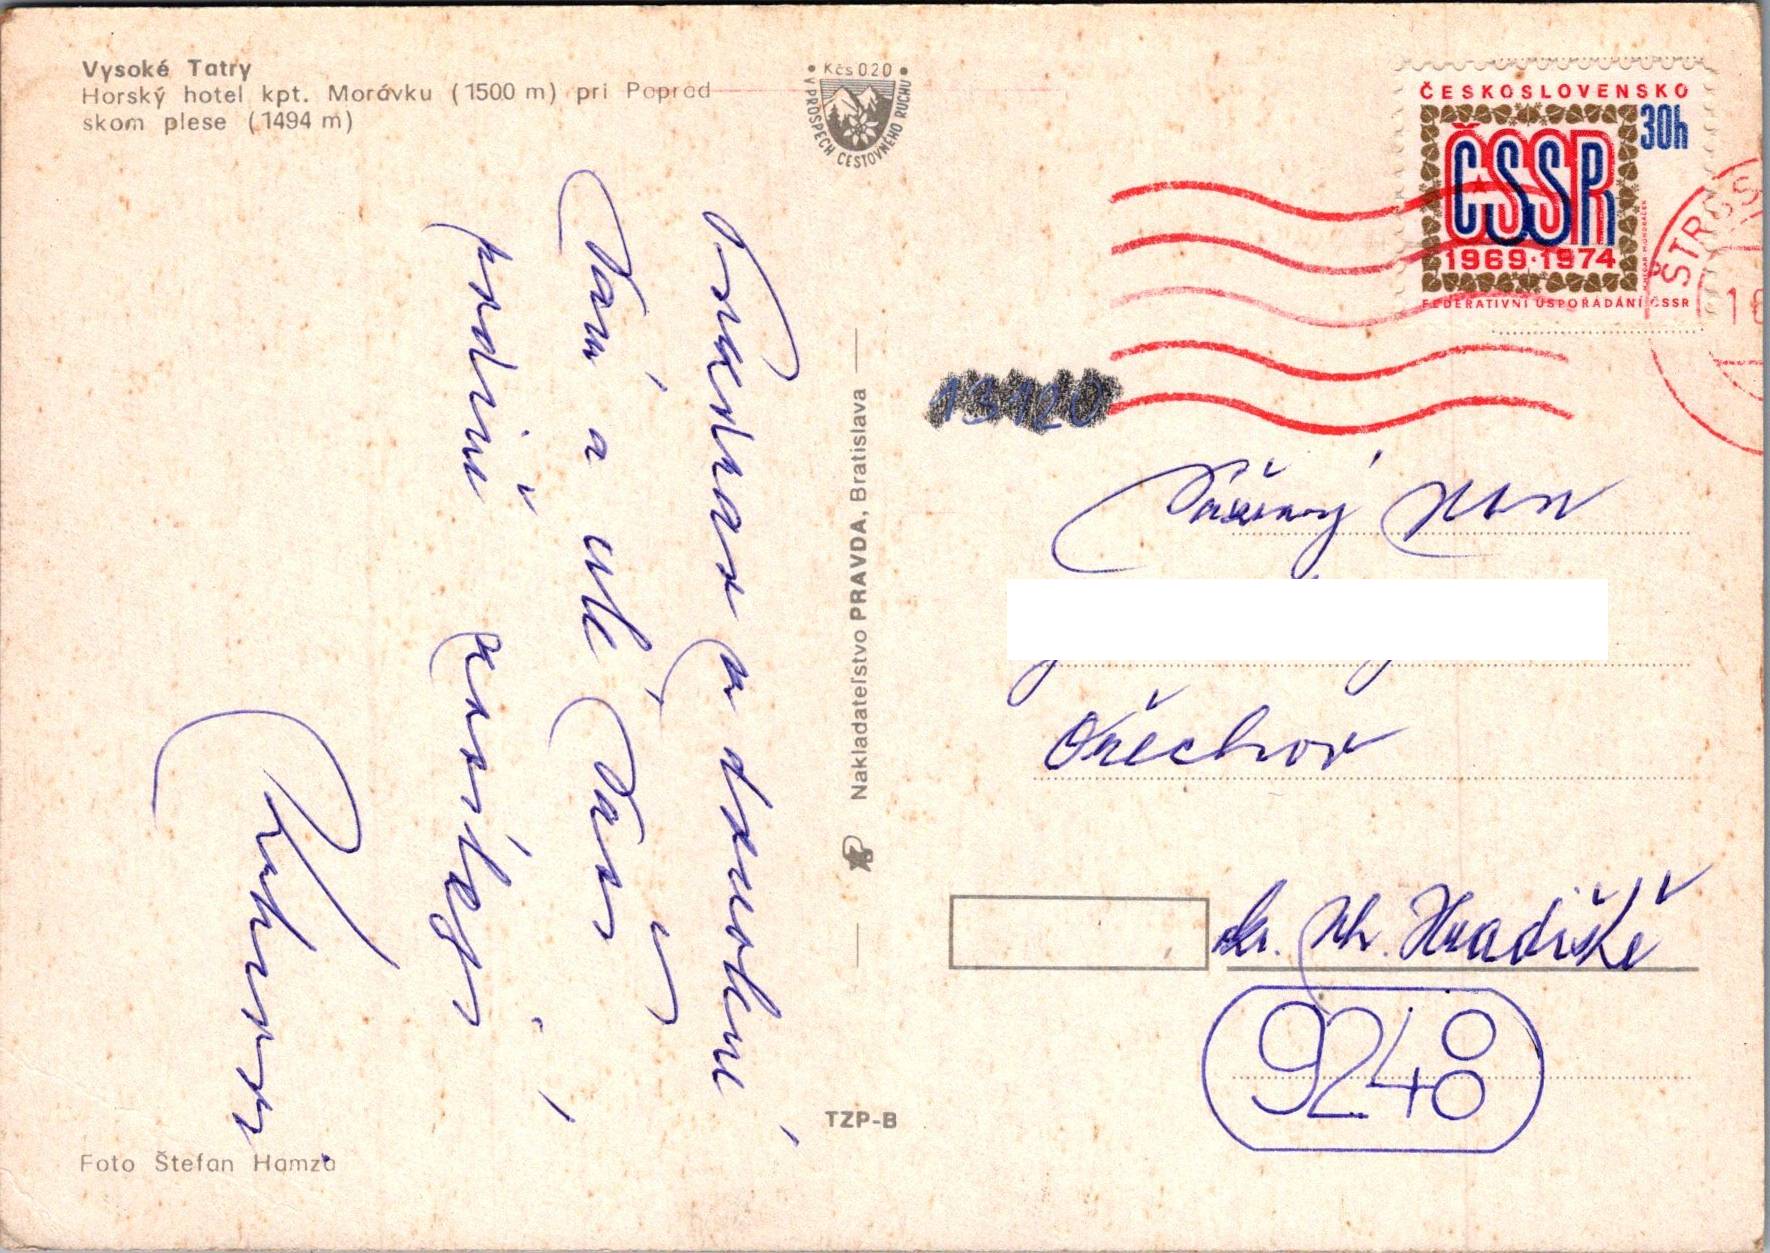 Vysoké Tatry
Horský hotel kpt. Morávku (1500 m) pri Poprad
skom plese (1494 m)
Kčs 0 20
V PROSPECH CESTOVNÉHO RUCHU
Pozdrav z dovolené
Vám a celé Vaší
rodině posílají
Nakladateľstvo PRAVDA, Bratislava
TZP-B
Foto Štefan Hamza
ČESKOSLOVENSKO
30h
ČSSR
1969·1974
FEDERATIVNÍ USPOŘÁDÁNÍ ČSSR
ŠTRBS
13120
Ořechov
okr. Uh. Hradiště
9248